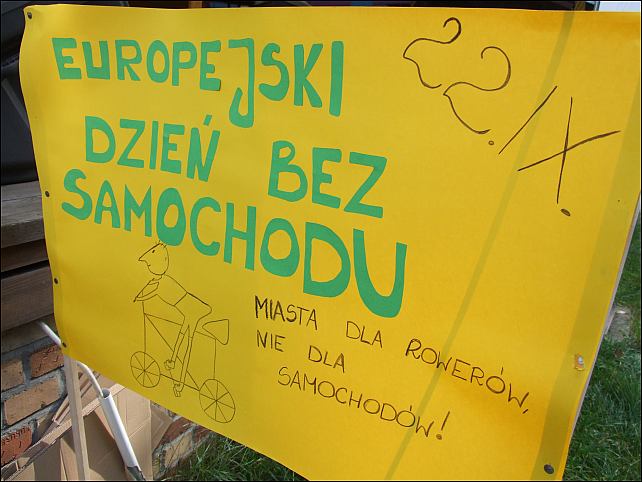 EUROPEJSKI
22./IX.
DZIEŃ BEZ
SAMOCHODU
MIASTA DLA ROWERÓW,
NIE DLA
SAMOCHODÓW!